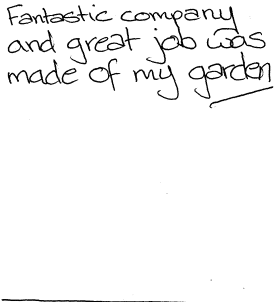 Fantastic company
and great job was
made of my garden